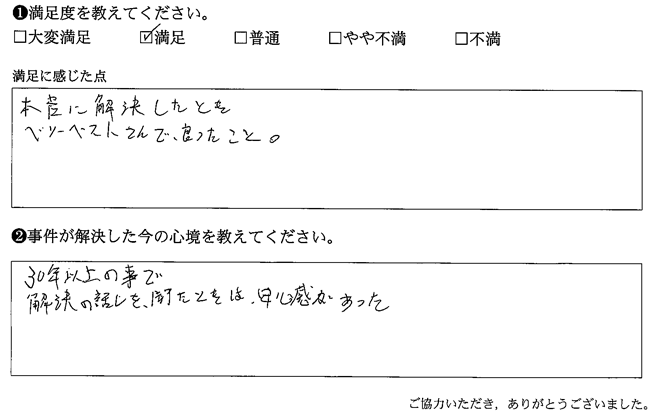 ❶満足度を教えてください。
□大変満足 ☑満足 □普通 □やや不満 □不満
満足に感じた点
本当に解決したとき
ベリーベストさんで、良かったこと。
❷事件が解決した今の心境を教えてください。
30年以上の事で
解決の話しを、聞たときは、安心感があった
ご協力いただき，ありがとうございました。